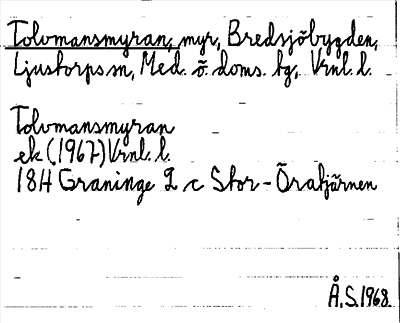 Tolvmansmyran, myr, Bredsjöbygden,
Ljustorps sn, Med. ö. doms. tg, Vrnl. l.
Tolvmansmyran
ek (1967) Vrnl. l.
18H Graninge 2 c Stor-Öratjärnen
Å.S. 1968.